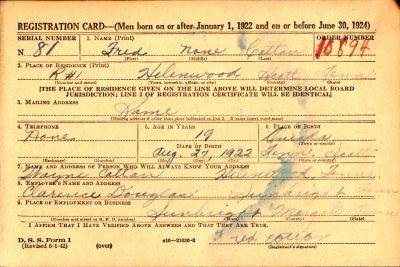 REGISTRATION CARD—(Men born on or after January 1, 1922 and on or before June 30, 1924)
SERIAL NUMBER 1. Name (Print) ORDER NUMBER
N. 81 Fred None Cotton 10894
(First) (Middle) (Last)
2. Place of Residence (Print)
R#1 Helenwood Scott Tenn
(Number and street) (Town, township, village, or city) (County) (State)
[THE PLACE OF RESIDENCE GIVEN ON THE LINE ABOVE WILL DETERMINE LOCAL BOARD
JURISDICTION; LINE 2 OF REGISTRATION CERTIFICATE WILL BE IDENTICAL]
3. Mailing Address
Same
(Mailing address if other than place indicated on line 2. If same insert word same)
4. Telephone 5. Age in Years 6. Place of Birth
None 19
Date of Birth (Town or county)
Aug. 27, 1922
(Exchange) (Number) (Mo.) (Day) (Yr.) (State or country)
7. Name and Address of Person Who Will Always Know Your Address
Wayne Cotton
8. Employer's Name and Address
Clarence Douglas
9. Place of Employment or Business
(Number and street or R. F. D. number) (Town) (County) (State)
I Affirm That I Have Verified Above Answers and That They Are True.
D. S. S. Form 1
(Revised 6-1-42) (over) Fred Cotton
(Registrant's signature)